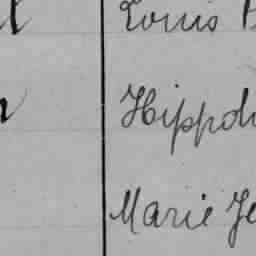 Louis
Hippol
Marie Je